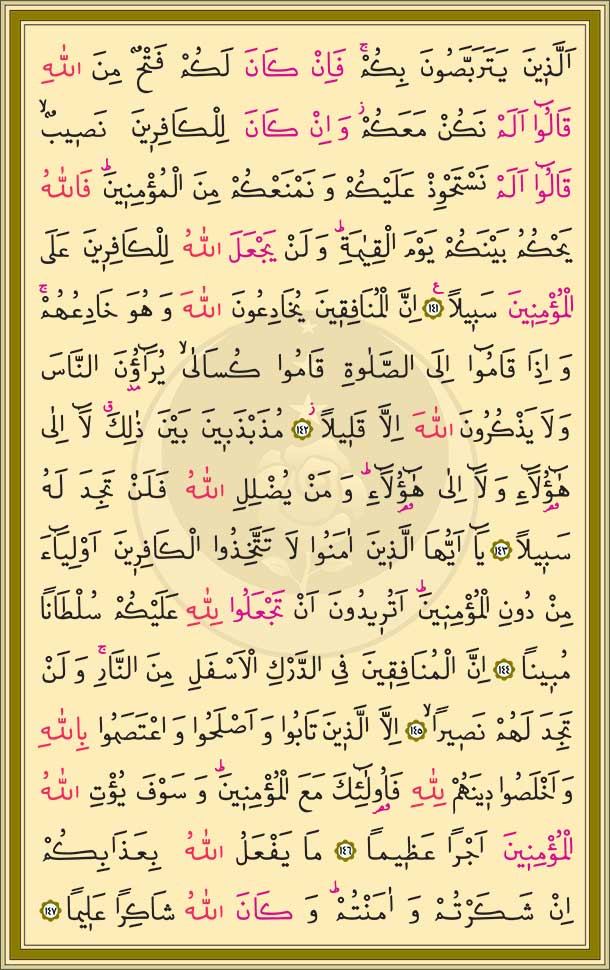 اَلَّذ۪ينَ يَتَرَبَّصُونَ بِكُمْۚ فَاِنْ كَانَ لَكُمْ فَتْحٌ مِنَ اللّٰهِ
قَالُٓوا اَلَمْ نَكُنْ مَعَكُمْۘ وَاِنْ كَانَ لِلْكَافِر۪ينَ نَص۪يبٌۙ
قَالُٓوا اَلَمْ نَسْتَحْوِذْ عَلَيْكُمْ وَنَمْنَعْكُمْ مِنَ الْمُؤْمِن۪ينَۜ فَاللّٰهُ
يَحْكُمُ بَيْنَكُمْ يَوْمَ الْقِيٰمَةِۜ وَلَنْ يَجْعَلَ اللّٰهُ لِلْكَافِر۪ينَ عَلَى
الْمُؤْمِن۪ينَ سَب۪يلاًع ﴿١٤١﴾ اِنَّ الْمُنَافِق۪ينَ يُخَادِعُونَ اللّٰهَ وَهُوَ خَادِعُهُمْۚ
وَاِذَا قَامُٓوا اِلَى الصَّلٰوةِ قَامُوا كُسَالٰىۙ يُرَٓاؤُ۫نَ النَّاسَ
وَلَا يَذْكُرُونَ اللّٰهَ اِلَّا قَل۪يلاًز ﴿١٤٢﴾ مُذَبْذَب۪ينَ بَيْنَ ذٰلِكَۗ لَٓا اِلٰى
هٰٓؤُ۬لَٓاءِ وَلَٓا اِلٰى هٰٓؤُ۬لَٓاءِۜ وَمَنْ يُضْلِلِ اللّٰهُ فَلَنْ تَجِدَ لَهُ
سَب۪يلاً ﴿١٤٣﴾ يَٓا اَيُّهَا الَّذ۪ينَ اٰمَنُوا لَا تَتَّخِذُوا الْكَافِر۪ينَ اَوْلِيَٓاءَ
مِنْ دُونِ الْمُؤْمِن۪ينَۜ اَتُر۪يدُونَ اَنْ تَجْعَلُوا لِلّٰهِ عَلَيْكُمْ سُلْطَاناً
مُب۪يناً ﴿١٤٤﴾ اِنَّ الْمُنَافِق۪ينَ فِي الدَّرْكِ الْاَسْفَلِ مِنَ النَّارِۚ وَلَنْ
تَجِدَ لَهُمْ نَص۪يراًۙ ﴿١٤٥﴾ اِلَّا الَّذ۪ينَ تَابُوا وَاَصْلَحُوا وَاعْتَصَمُوا بِاللّٰهِ
وَاَخْلَصُوا د۪ينَهُمْ لِلّٰهِ فَاُو۬لٰٓئِكَ مَعَ الْمُؤْمِن۪ينَۜ وَسَوْفَ يُؤْتِ اللّٰهُ
الْمُؤْمِن۪ينَ اَجْراً عَظ۪يماً ﴿١٤٦﴾ مَا يَفْعَلُ اللّٰهُ بِعَذَابِكُمْ
اِنْ شَكَرْتُمْ وَاٰمَنْتُمْۜ وَكَانَ اللّٰهُ شَاكِراً عَل۪يماً ﴿١٤٧﴾